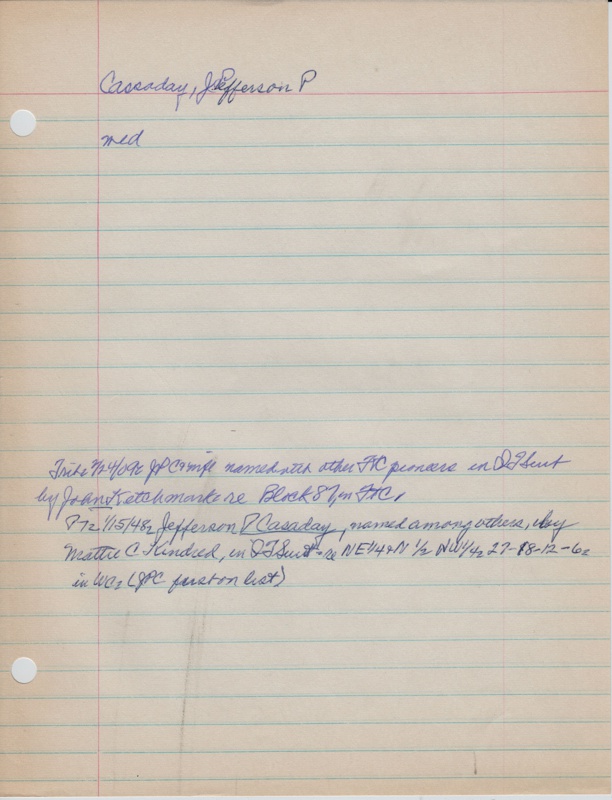 Cassaday, Jefferson P
med
Tribs 7/24/096 JPC & wife named with other FHC pioneers in QT Suit
by Joan Ketchmarke re Block 87, in FHC,
P72 1/15/48, Jefferson P Casaday, named among others, by
Mattie C Kindred, in QT Suit re NE1/4 & N 1/2 NW1/4, 27-18-12-6,
in WC, (JPC first on list)